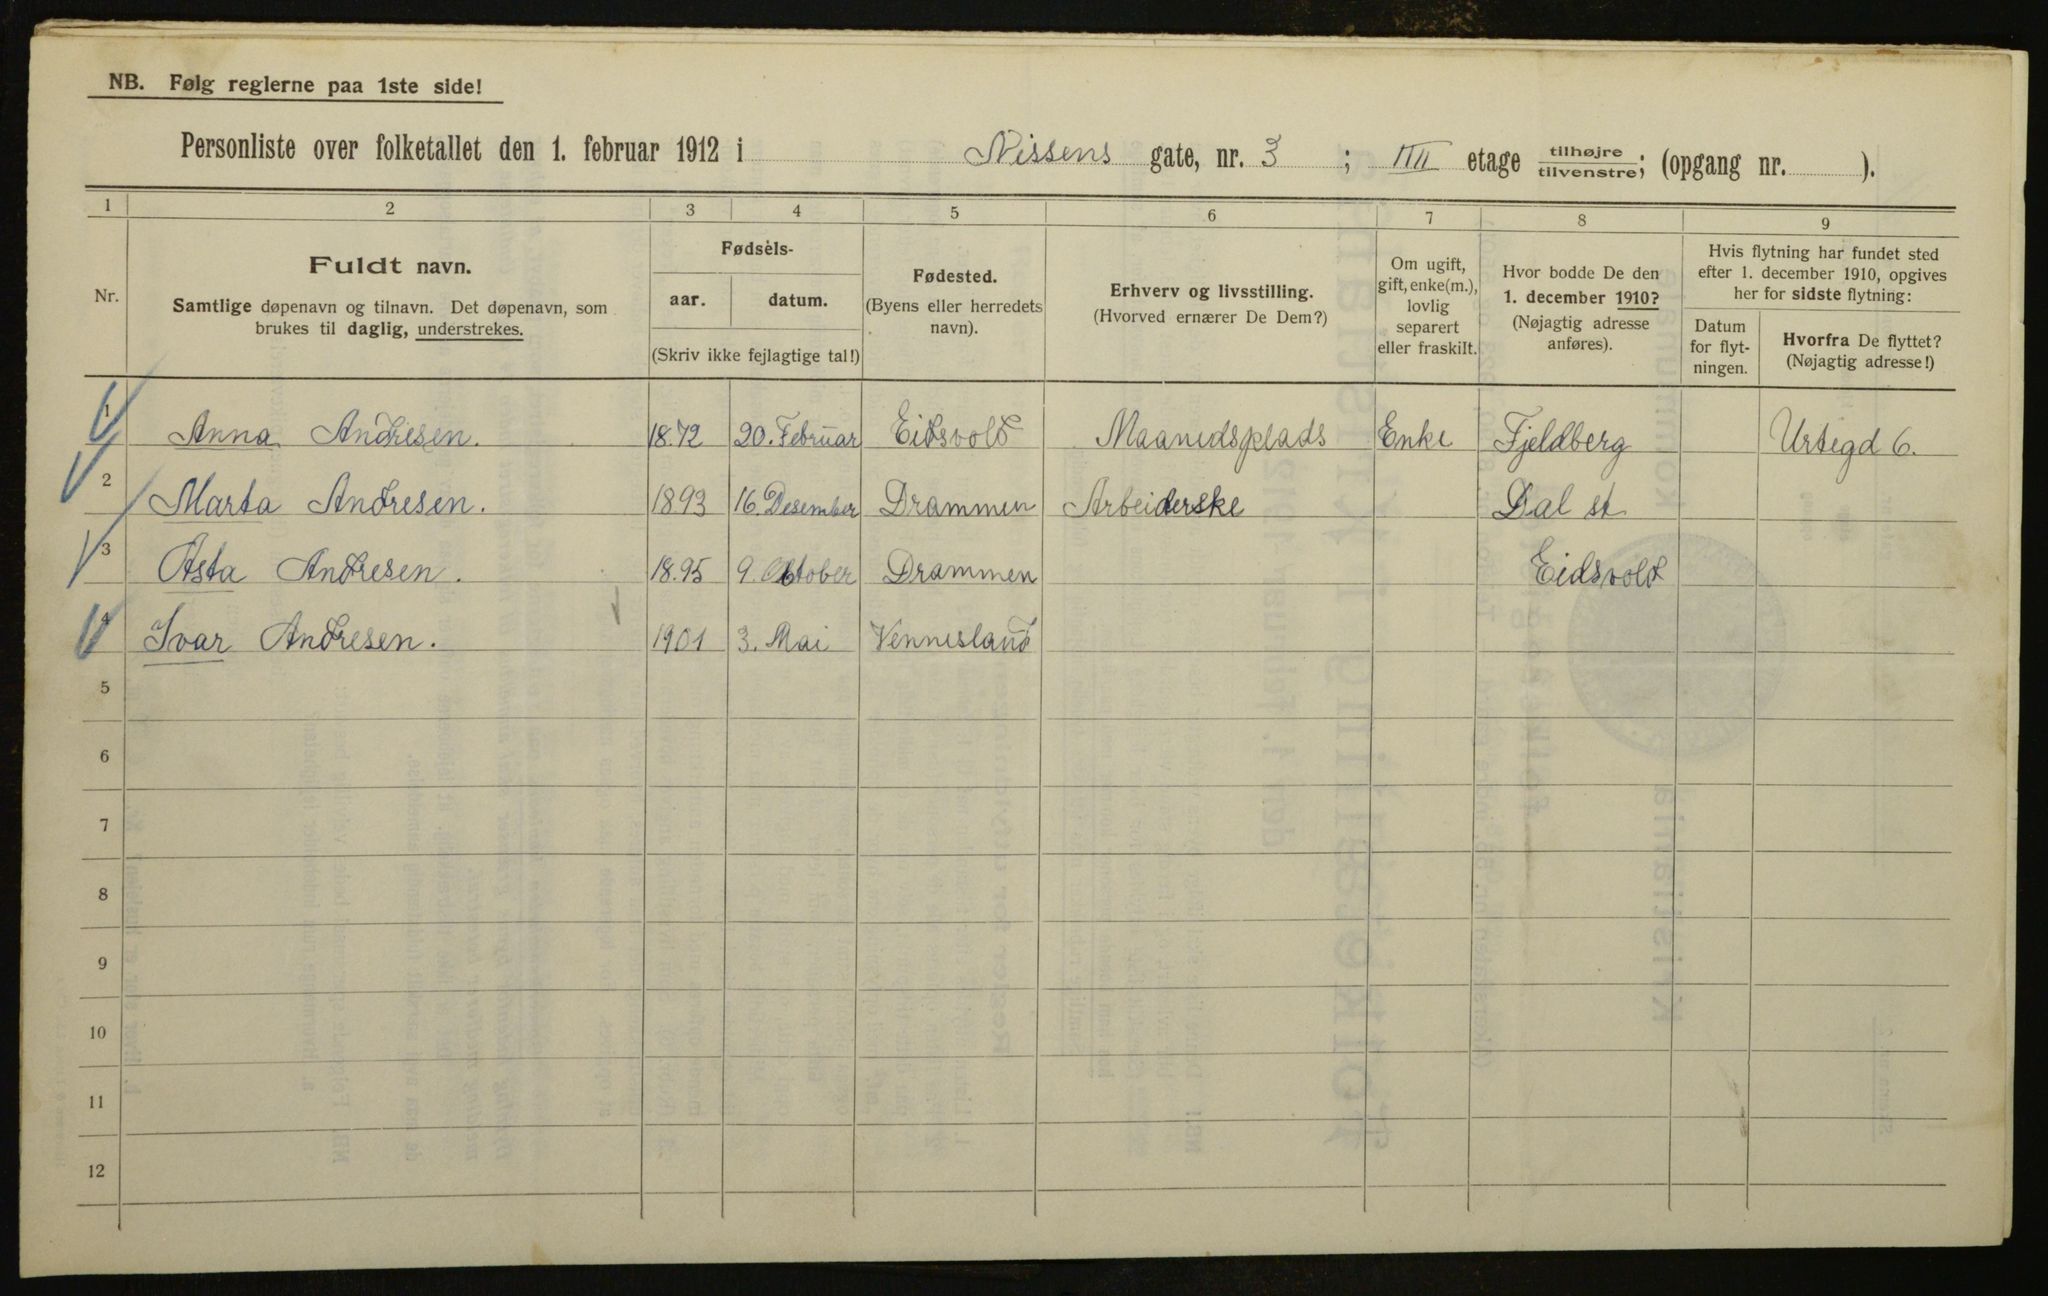 NB. Følg reglerne paa 1ste side!
Personliste over folketallet den 1. februar 1912 i Nissens gate, nr. 3 ; IIII etage tilhøjre tilvenstre; (opgang nr. ).
1 2 3 4 5 6 7 8 9
Nr.
Fuldt navn.
Samtlige døpenavn og tilnavn. Det døpenavn, som
brukes til daglig, understrekes.
Fødsels-
aar. datum.
(Skriv ikke fejlagtige tal!)
Fødested.
(Byens eller herredets
navn).
Erhverv og livsstilling.
(Hvorved ernærer De Dem?)
Om ugift,
gift, enke(m.),
lovlig
separert
eller fraskilt.
Hvor bodde De den
1. december 1910?
(Nøjagtig adresse
anføres).
Hvis flytning har fundet sted
efter 1. december 1910, opgives
her for sidste flytning:
Datum
for flyt-
ningen.
Hvorfra De flyttet?
(Nøjagtig adresse!)
1 Anna Andresen. 18.72 20. Februar Eidsvold Maanedsplads Enke Fjeldberg Urtegd 6.
2 Marta Andresen. 18.93 16. Desember Drammen Arbeiderske Dal st
3 Asta Andresen. 18.95 9. Oktober Drammen Eidsvold
4 Ivar Andresen. 1901 3. Mai Vennesland
5
6
7
8
9
10
11
12